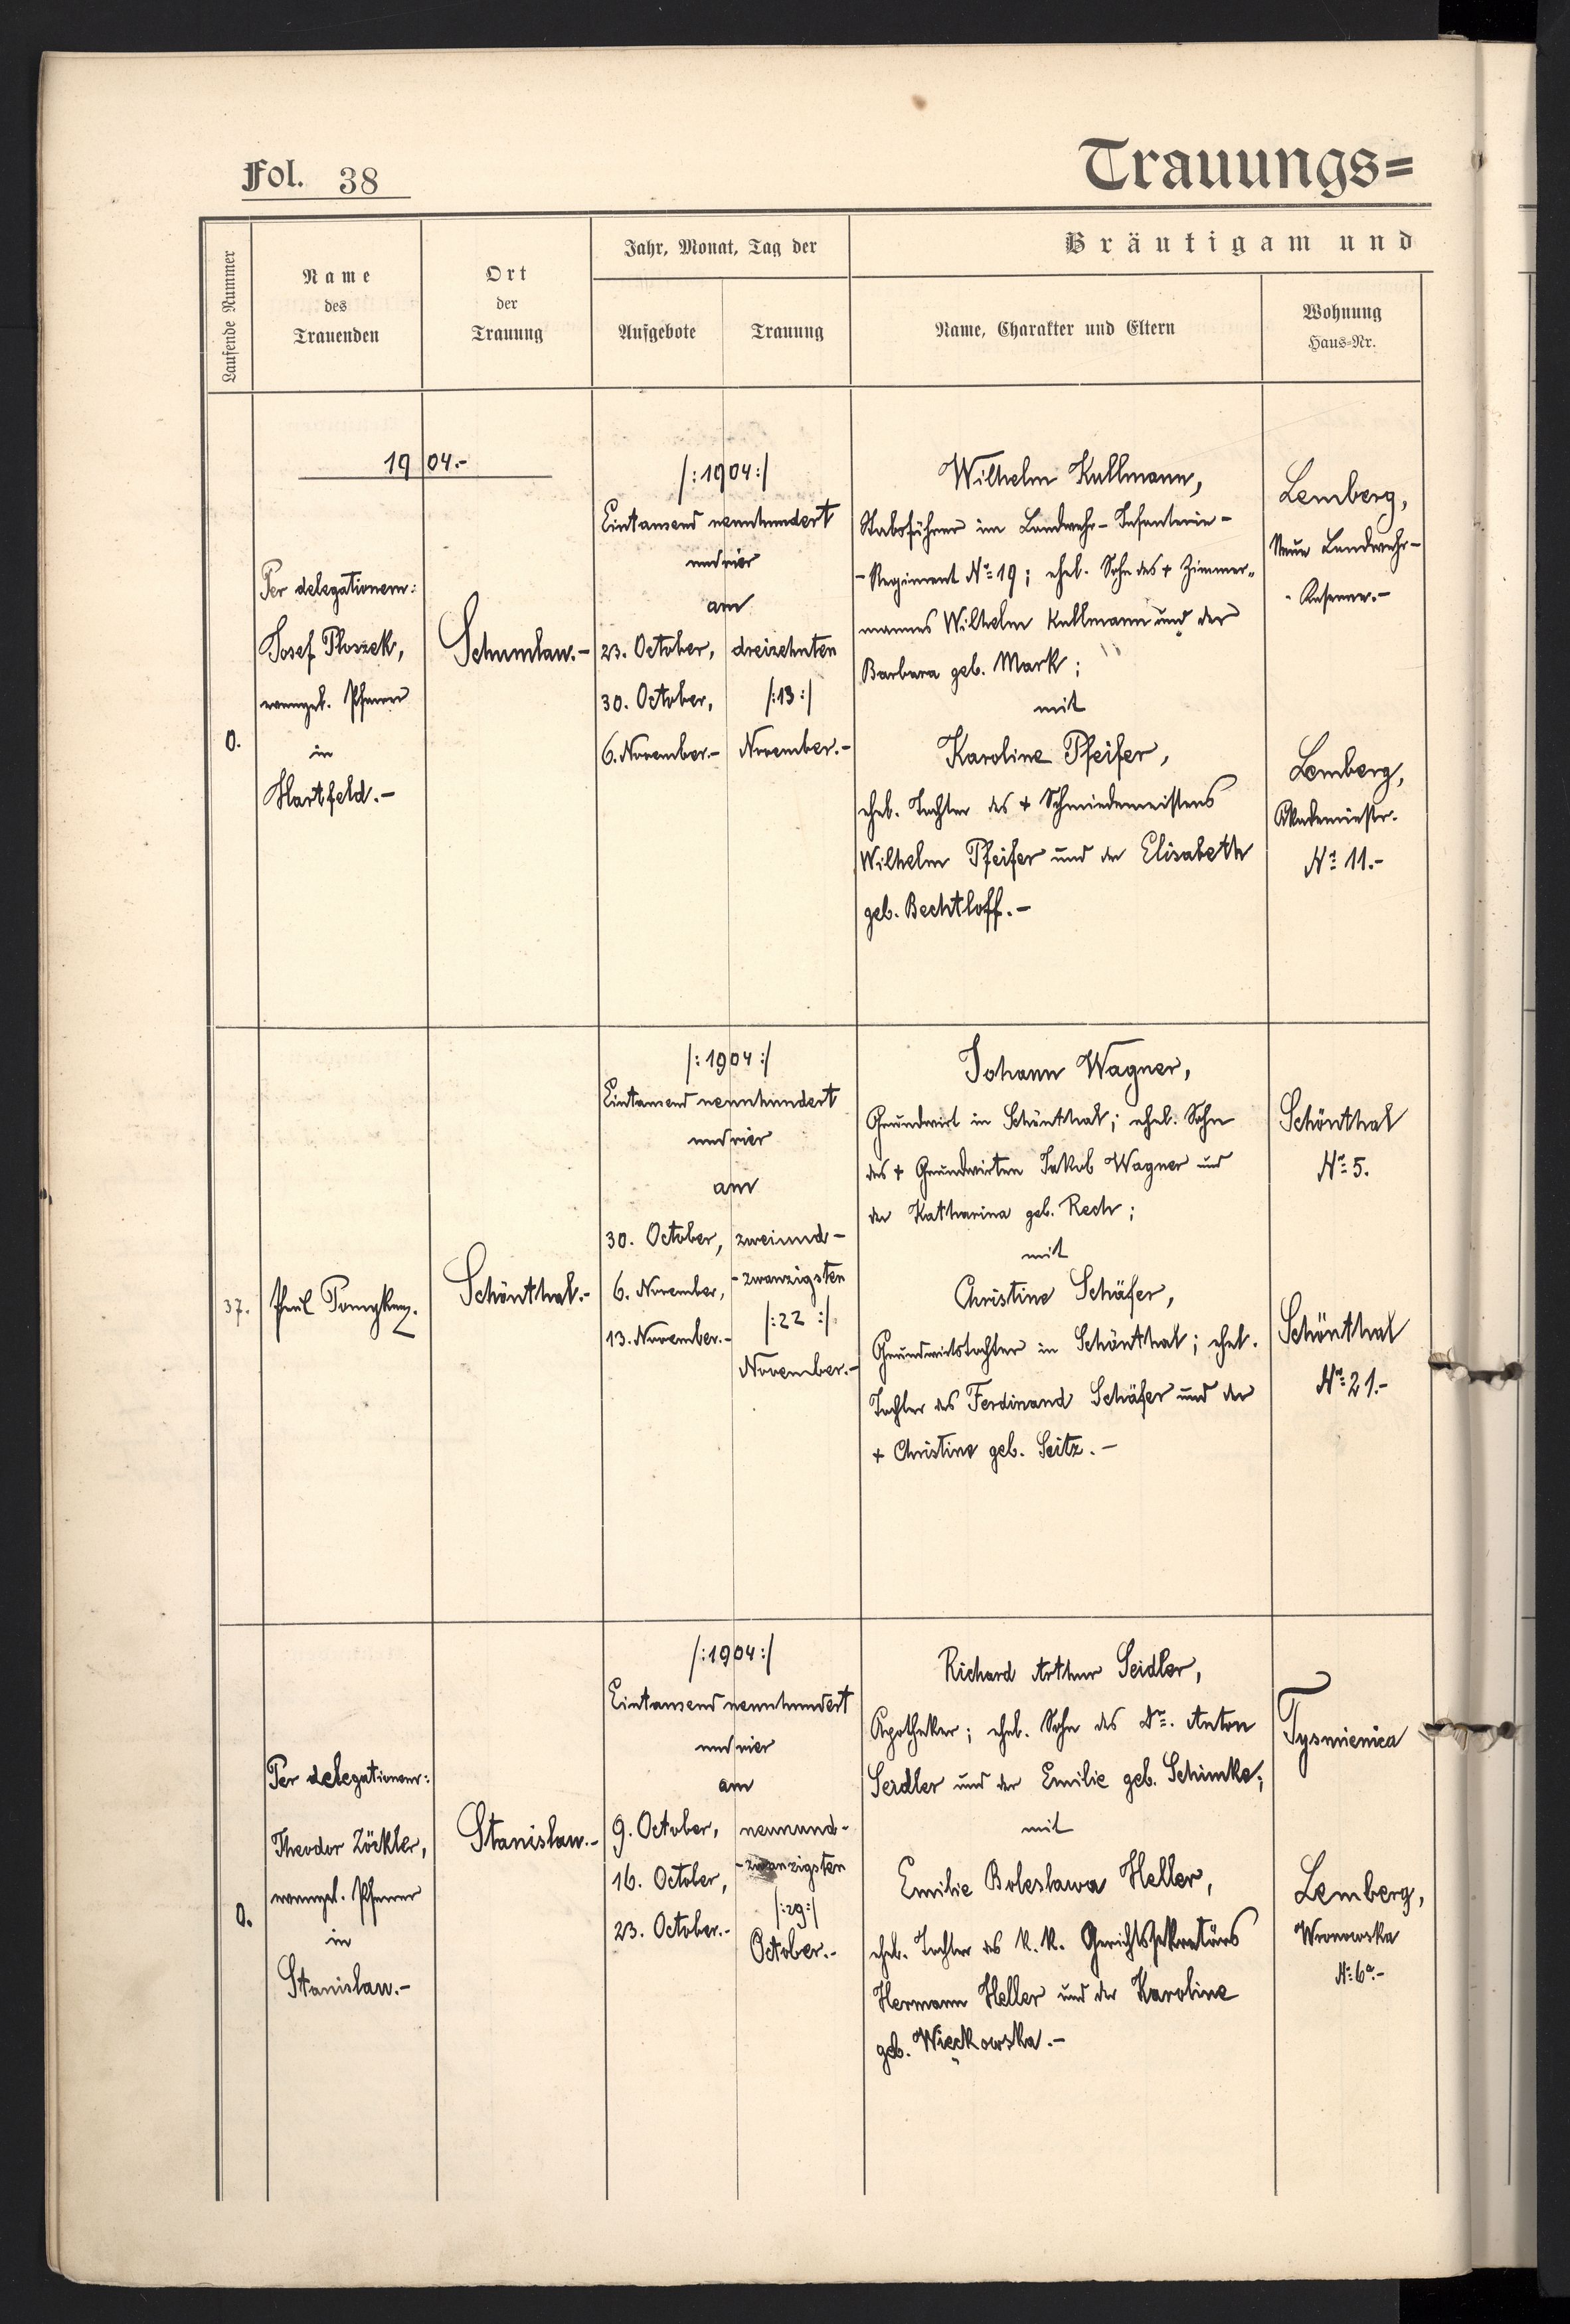 Fol. 38
Trauungs=
Laufende Nummer
Name
des
Trauenden
Ort
der
Trauung
Jahr, Monat, Tag der
Aufgebote
Trauung
Bräutigam und
Name, Charakter und Eltern
Wohnung
Haus=Nr.
1904.-
0.
Per delegationem:
Josef Ploszek,
evangel. Pfarrer
in
Hartfeld.-
Schumlau.-
/:1904:/
Eintausend neunhundert
und vier
am
23. October,
30. October,
6. November.-
dreizehnten
/:13:/
November.-
Wilhelm Kullmann,
Stabsführer im Landwehr-Infanterie-
-Regiment No: 19; ehel. Sohn des + Zimmer-
mannes Wilhelm Kullmann und der
Barbara geb. Mark;
mit
Karoline Pfeifer,
ehel. Tochter des + Schmiedemeisters
Wilhelm Pfeifer und der Elisabeth
geb. Bechtloff.-
Lemberg,
Neue Landwehr-
-Kaserne.-
Lemberg,
Akademiestr.
No: 11.-
37.
Paul
Schönthal.-
/:1904:/
Eintausend neunhundert
und vier
am
30. October,
6. November,
13. November.-
zweiund-
-zwanzigsten
/:22:/
November.-
Johann Wagner,
Grundwirt in Schönthal; ehel. Sohn
des + Grundwirten Jakob Wagner und
der Katharina geb. Rech;
mit
Christine Schäfer,
Grundwirtstochter in Schönthal; ehel.
Tochter des Ferdinand Schäfer und der
+ Christine geb. Seitz.-
Schönthal
No: 5.
Schönthal
No: 21.-
0.
Per delegationem:
Theodor Zöckler,
evangel. Pfarrer
in
Stanislau.-
Stanislau.-
/:1904:/
Eintausend neunhundert
und vier
am
9. October,
16. October,
23. October.-
neunund-
-zwanzigsten
/:29:/
October.-
Richard Arthur Seidler,
Apotheker; ehel. Sohn des Dr. Anton
Seidler und der Emilie geb. Schimke;
mit
Emilie Boleslawa Heller,
ehel. Tochter des k.k. Gerichtssekretärs
Hermann Heller und der Karoline
geb. Więckowska.-
Tysmienica
Lemberg,
Wronowska
No: 6a.-